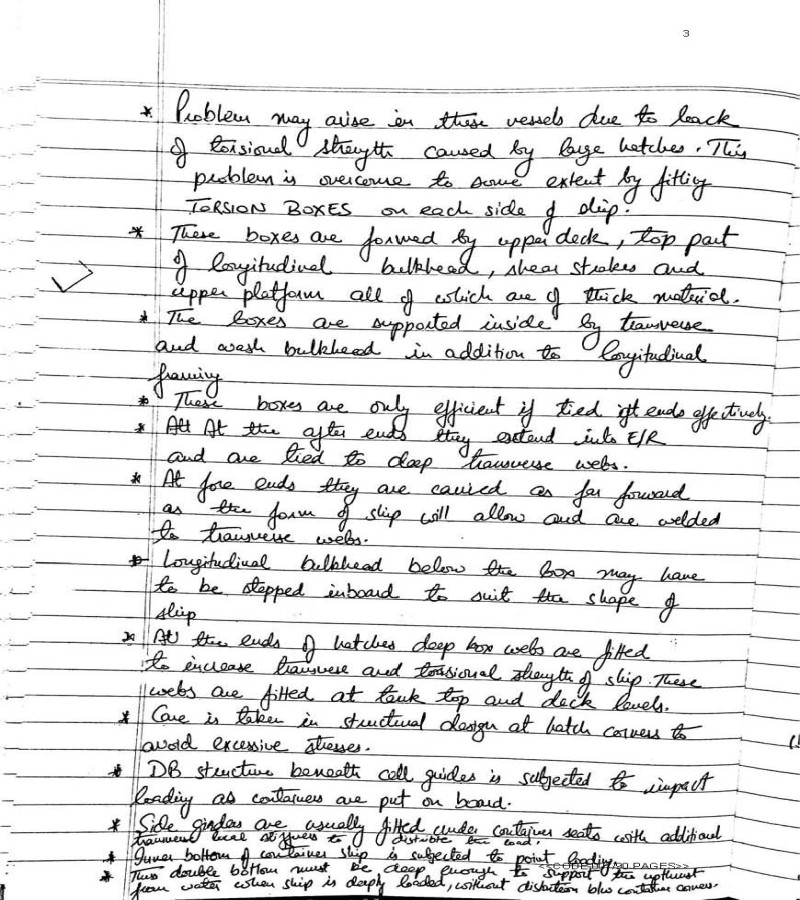 3
* Problem may arise in these vessels due to lack
of torsional strength caused by large hatches. This
problem is overcome to some extent by fitting
TORSION BOXES on each side of ship.
* These boxes are formed by upper deck, top part
of longitudinal bulkhead, shear strakes and
upper platform all of which are of thick material.
* The boxes are supported inside by transverse
and wash bulkhead in addition to longitudinal
framing
* These boxes are only efficient if tied at ends effectively.
* At the after ends they extend into E/R
and are tied to deep transverse webs.
* At fore ends they are carried as far forward
as the form of ship will allow and are welded
to transverse webs.
* Longitudinal bulkhead below the box may have
to be stepped inboard to suit the shape of
ship
* At the ends of hatches deep box webs are fitted
to increase transverse and torsional strength of ship. These
webs are fitted at tank top and deck levels.
* Care is taken in structural design at hatch corners to
avoid excessive stresses.
* DB structure beneath cell guides is subjected to impact
loading as containers are put on board.
* Side girders are usually fitted under container seats with additional
transverse local stiffners to distribute the load.
* Inner bottom of container ship is subjected to point loading
PAGES>>
* Thus double bottom must be deep enough to support the upthrust
from water when ship is deeply loaded, without distortion b/w container corners.